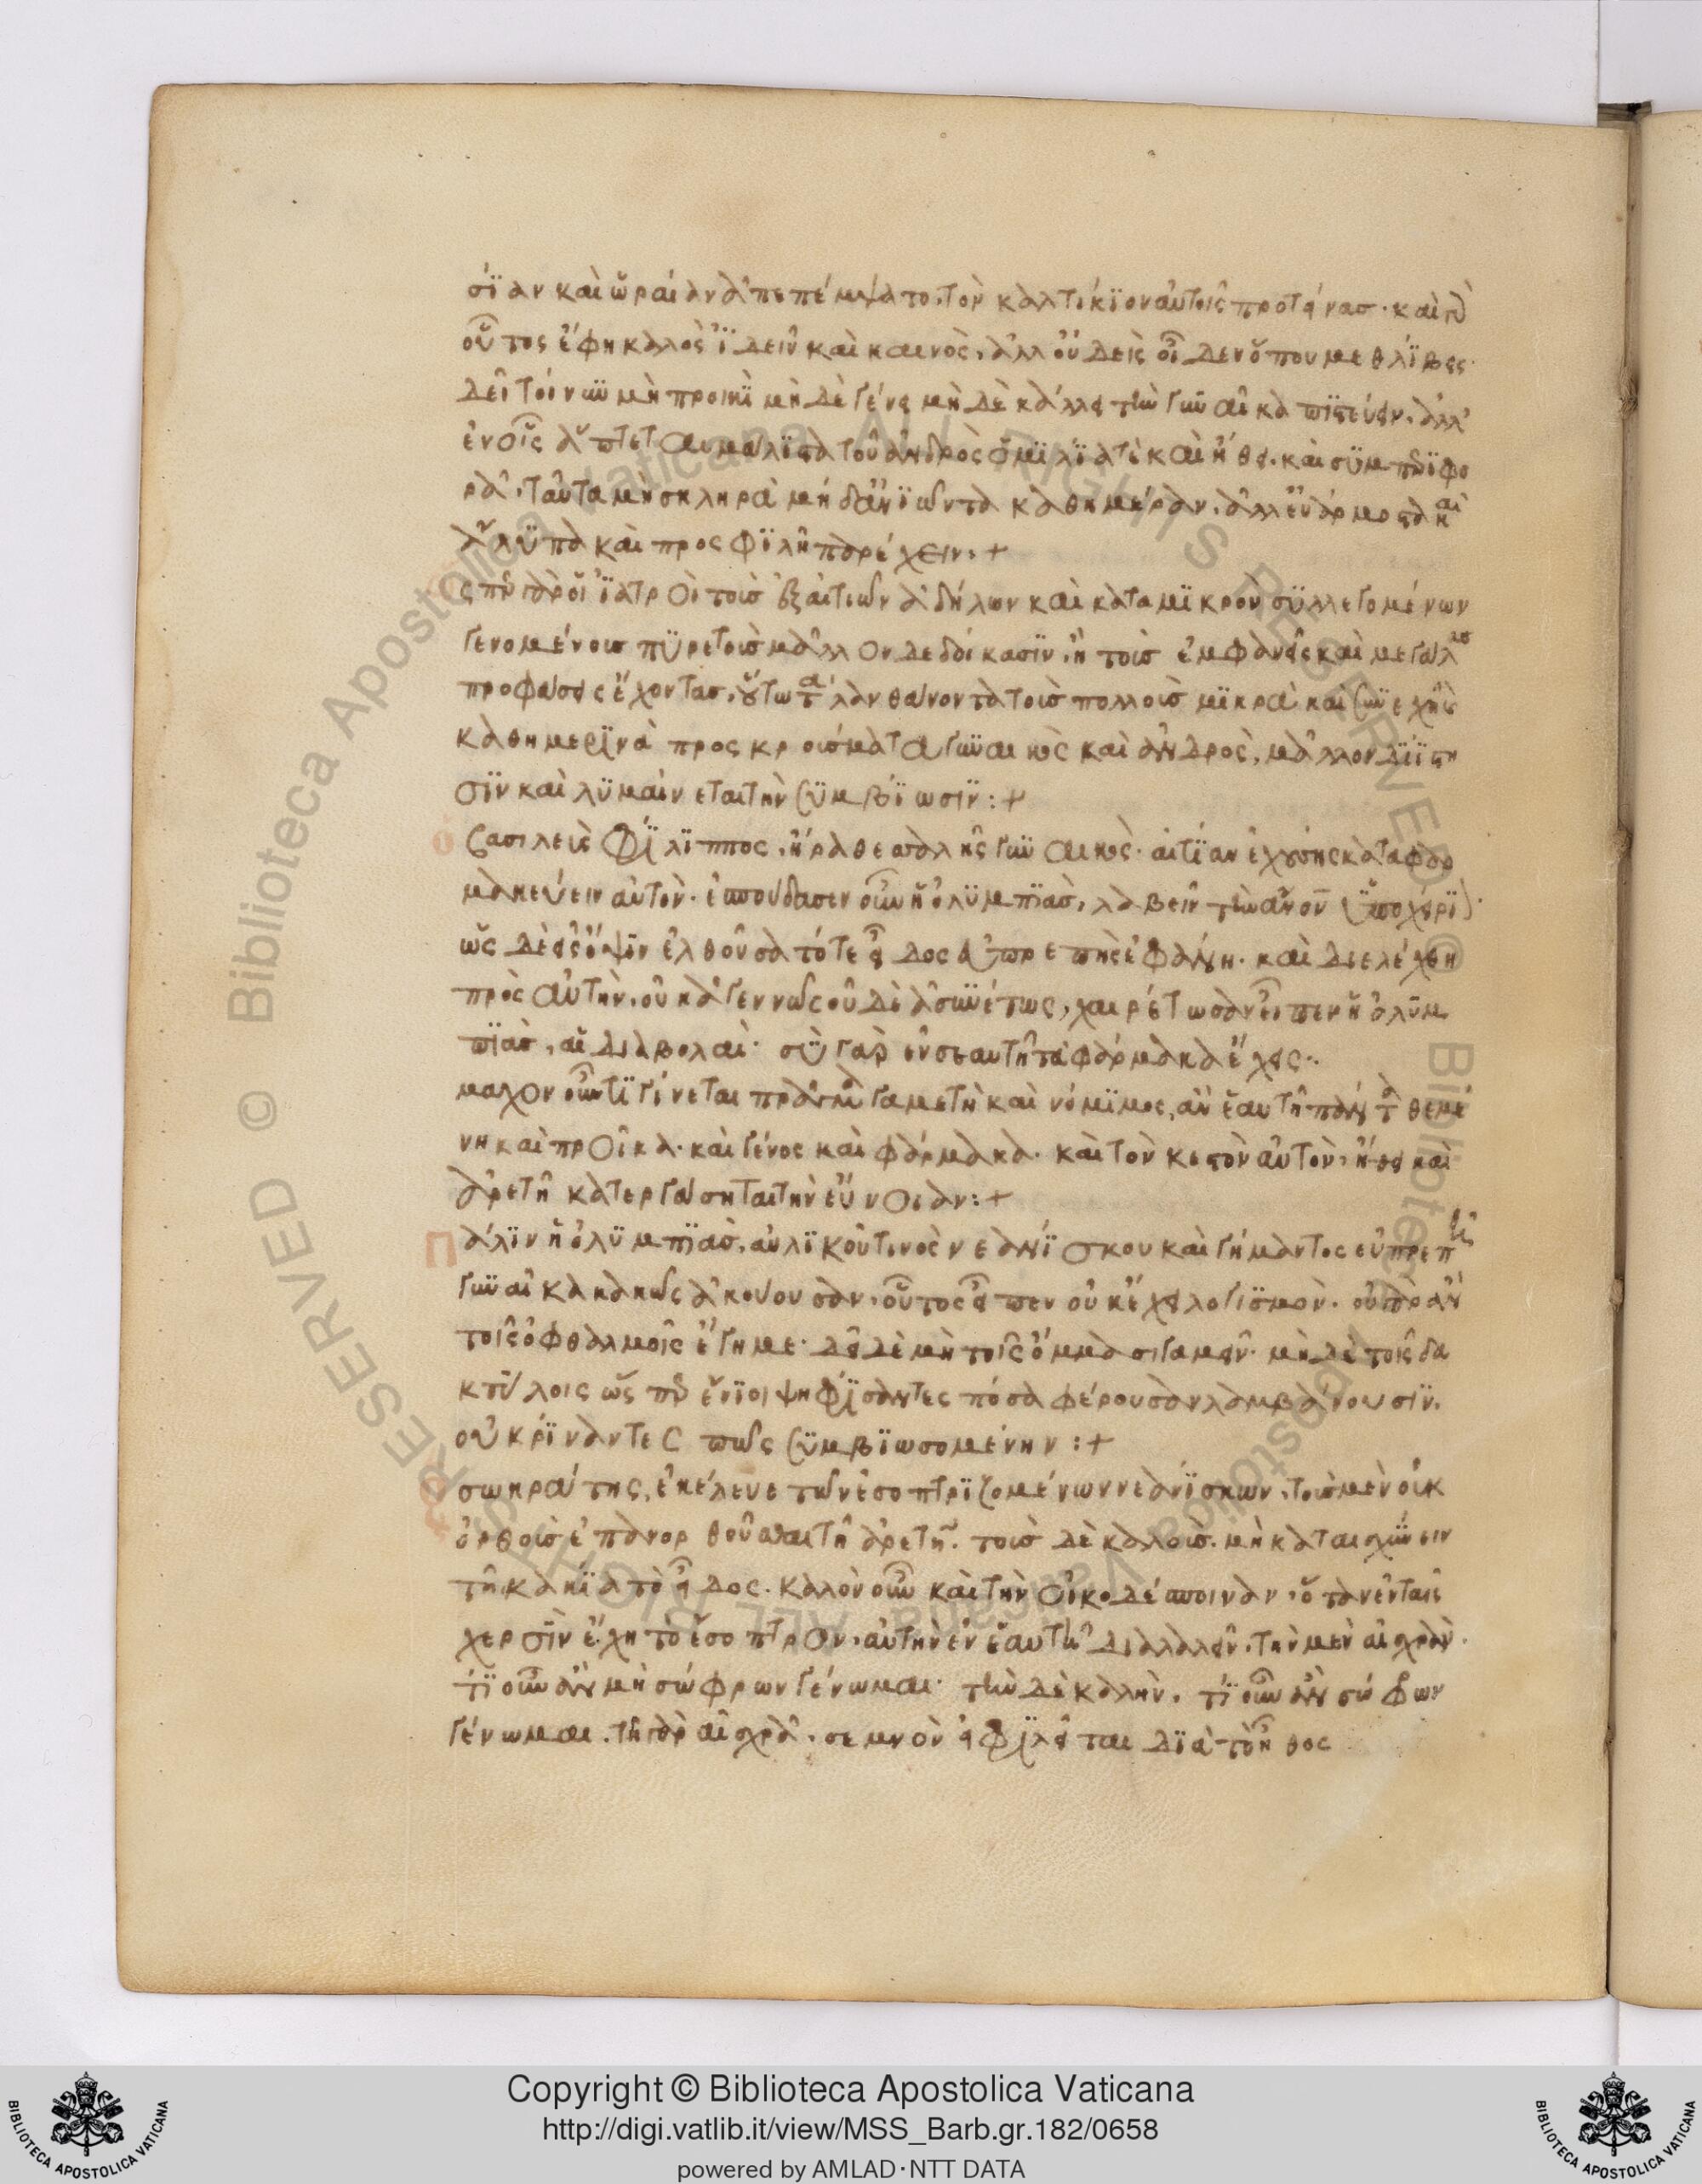 σίαν καὶ ὥραίαν ἀπεπέμψατο, τὸν καλτίκϊον αὐτοῖς προτείνασ· καὶ γὰρ
οὗτος ἔφη καλὸς ἰδεῖν καὶ καινὸς, ἀλλ οὐδεὶς οἶδεν ὅπου με θλίβει·
δεῖ τοίνυν μὴ προικὶ μὴδὲ γένει μὴδὲ κάλλει τὴν γυναῖκα πιστεύειν, ἀλλ'
ἐν οἷς ἅπτεται μάλιστα τοῦ ἀνδρὸς ὁμιλία τὲ καὶ ἤθει καὶ συμπεριφο
ρᾶ, ταῦτα μὴ σκληρὰ μήδ' ἀνιῶντα καθημέραν, ἀλλ εὐάρμοστα καὶ
ἄλυπα καὶ προσφιλῆ παρέχειν:+
ὥσπερ γὰρ οἱ ἰατροὶ τοὺσ ἐξ αἰτιῶν ἀδήλων καὶ κατα μικρὸν συλλεγομένων
γενομένουσ πυρετοὺσ μᾶλλον δεδοίκασιν, ἢ τοὺσ ἐμφανεῖς καὶ μεγάλασ
προφάσεις ἔχοντασ, οὕτω τὰ λανθάνοντα τοὺσ πολλοὺσ μικρὰ καὶ συνεχῆ
καθημερινὰ προσκρούσματα γυναικὸς καὶ ἀνδρὸς, μᾶλλον διΐστη
σιν καὶ λυμαίνεται τὴν συμβίωσιν:+
ὁ βασιλεὺς Φίλιππος, ἤρα θεσσαλῆς γυναικὸς· αἰτίαν ἐχούσης καταφαρ
μακεύειν αὐτὸν· ἐσπούδασεν οὖν ἡ ὀλυμπιὰσ, λαβεῖν τὴν ἄνον ὑποχείριον·
ὡς δὲ εἰς ὄψιν ἐλθοῦσα τό τε εἶδος εὐπρεπὴς ἐφάνη· καὶ διελέχθη
πρὸς αὐτὴν, οὐκ ἀγεννῶς οὐδὲ ἀσυνέτως, χαιρέτωσαν εἶπεν ἡ ὀλυμ
πιὰσ, αἱ διαβολαὶ· σὺ γὰρ ἐν σεαυτῆ τὰ φάρμακα ἔχεις·
μαχον οὖν τι γίνεται πρᾶγμα γαμετὴ καὶ νόμιμος, ἂν ἑαυτῆ πάντα θεμέ
νη καὶ προῖκα· καὶ γένος καὶ φάρμακα· καὶ τὸν κεστὸν αὐτὸν, ἤθει καὶ
ἀρετῆ κατεργάσηται τὴν εὔνοιαν:+
Πάλιν ἡ ὀλυμπιὰσ, αὐλικοῦ τινὸς νεανίσκου καὶ γήμαντος εὐπρεπῆ
γυναῖκα κακῶς ἀκούουσαν, οὗτος εἶπεν οὐκ ἔχει λογισμὸν· οὐ γὰρ ἂν
τοῖς ὀφθαλμοῖς ἔγημε· δεῖ δὲ μὴ τοῖς ὄμμασι γαμεῖν· μὴδὲ τοῖς δα
κτύλοις ὥς περ ἔνιοι ψηφίσαντες πόσα φέρουσαν λαμβάνουσιν.
οὐ κρίναντες πῶς συμβιωσομένην:+
ὁ σωκράτης, ἐκέλευε τῶν ἐσοπτριζομένων νεανίσκων, τοὺσ μὲν οὐκ
ὀρθοὺσ ἐπανορθοῦσθαι τῆ ἀρετῆ· τοὺσ δὲ καλοὺσ. μὴ καταισχύνειν
τῆ κακία τὸ εἶδος. καλὸν οὖν καὶ τὴν οἰκοδέσποιναν, ὅταν ἐν ταῖς
χερσὶν ἔχη τὸ ἔσοπτρον, αὐτὴν ἐν ἑαυτῆ διαλαλεῖν, τὴν μὲν αἰσχρὰν.
τί οὖν ἂν μὴ σώφρων γένωμαι· τὴν δὲ καλὴν, τί οὖν ἂν σώφρων
γένωμαι. τῆ γὰρ αἰσχρᾶ, σεμνὸν εἰ φιλεῖται διὰ τὸ ἦθος
Copyright © Biblioteca Apostolica Vaticana
http://digi.vatlib.it/view/MSS_Barb.gr.182/0658
powered by AMLAD·NTT DATA